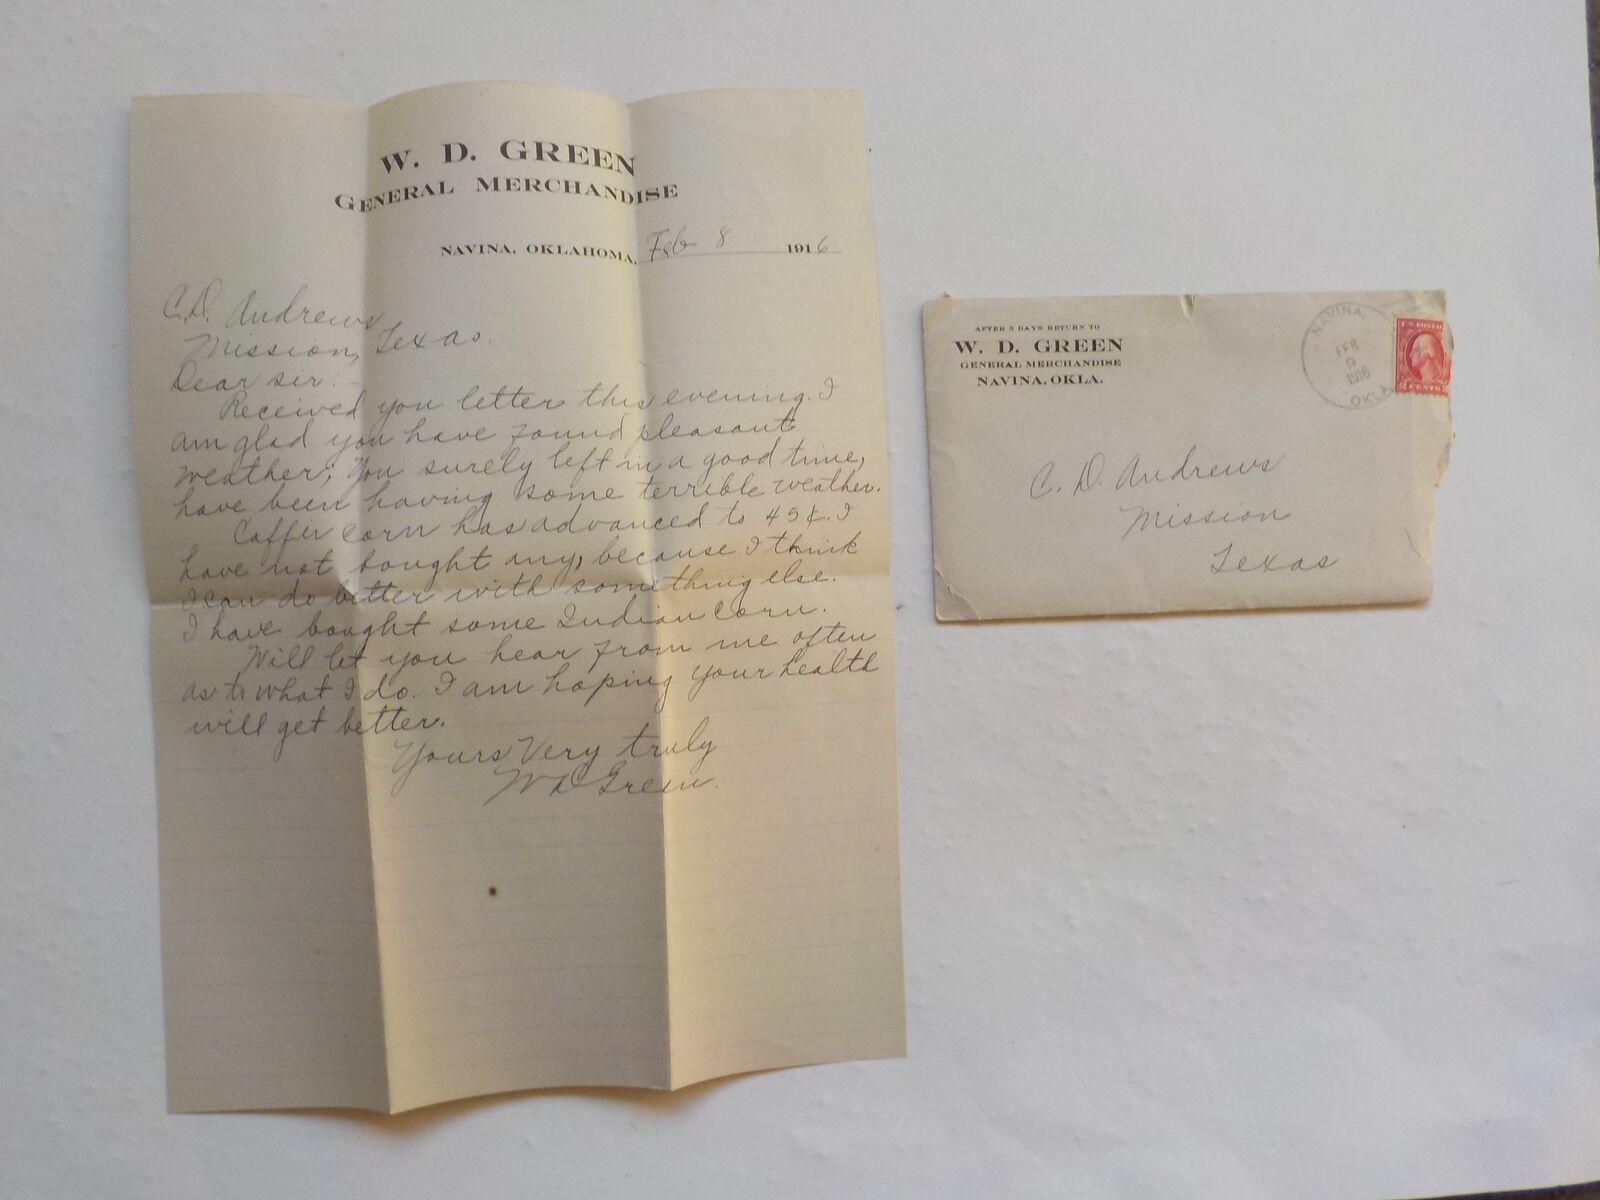 W. D. GREEN
GENERAL MERCHANDISE
NAVINA, OKLAHOMA, Feb 8 1916
C.D. Andrews
Mission, Texas.
Dear sir:-
Received you letter this evening. I
am glad you have found pleasant
weather; You surely left in a good time,
have been having some terrible weather.
Caffir corn has advanced to 45¢. I
have not bought any, because I think
I can do better with something else.
I have bought some Indian Corn.
Will let you hear from me often
as to what I do. I am hoping your health
will get better.
Yours Very truly
W D Green.
AFTER 5 DAYS RETURN TO
W. D. GREEN
GENERAL MERCHANDISE
NAVINA, OKLA.
NAVINA,
FEB
9
1916
OKLA.
U.S. POSTAGE
2 CENTS 2
C. D. Andrews
Mission
Texas